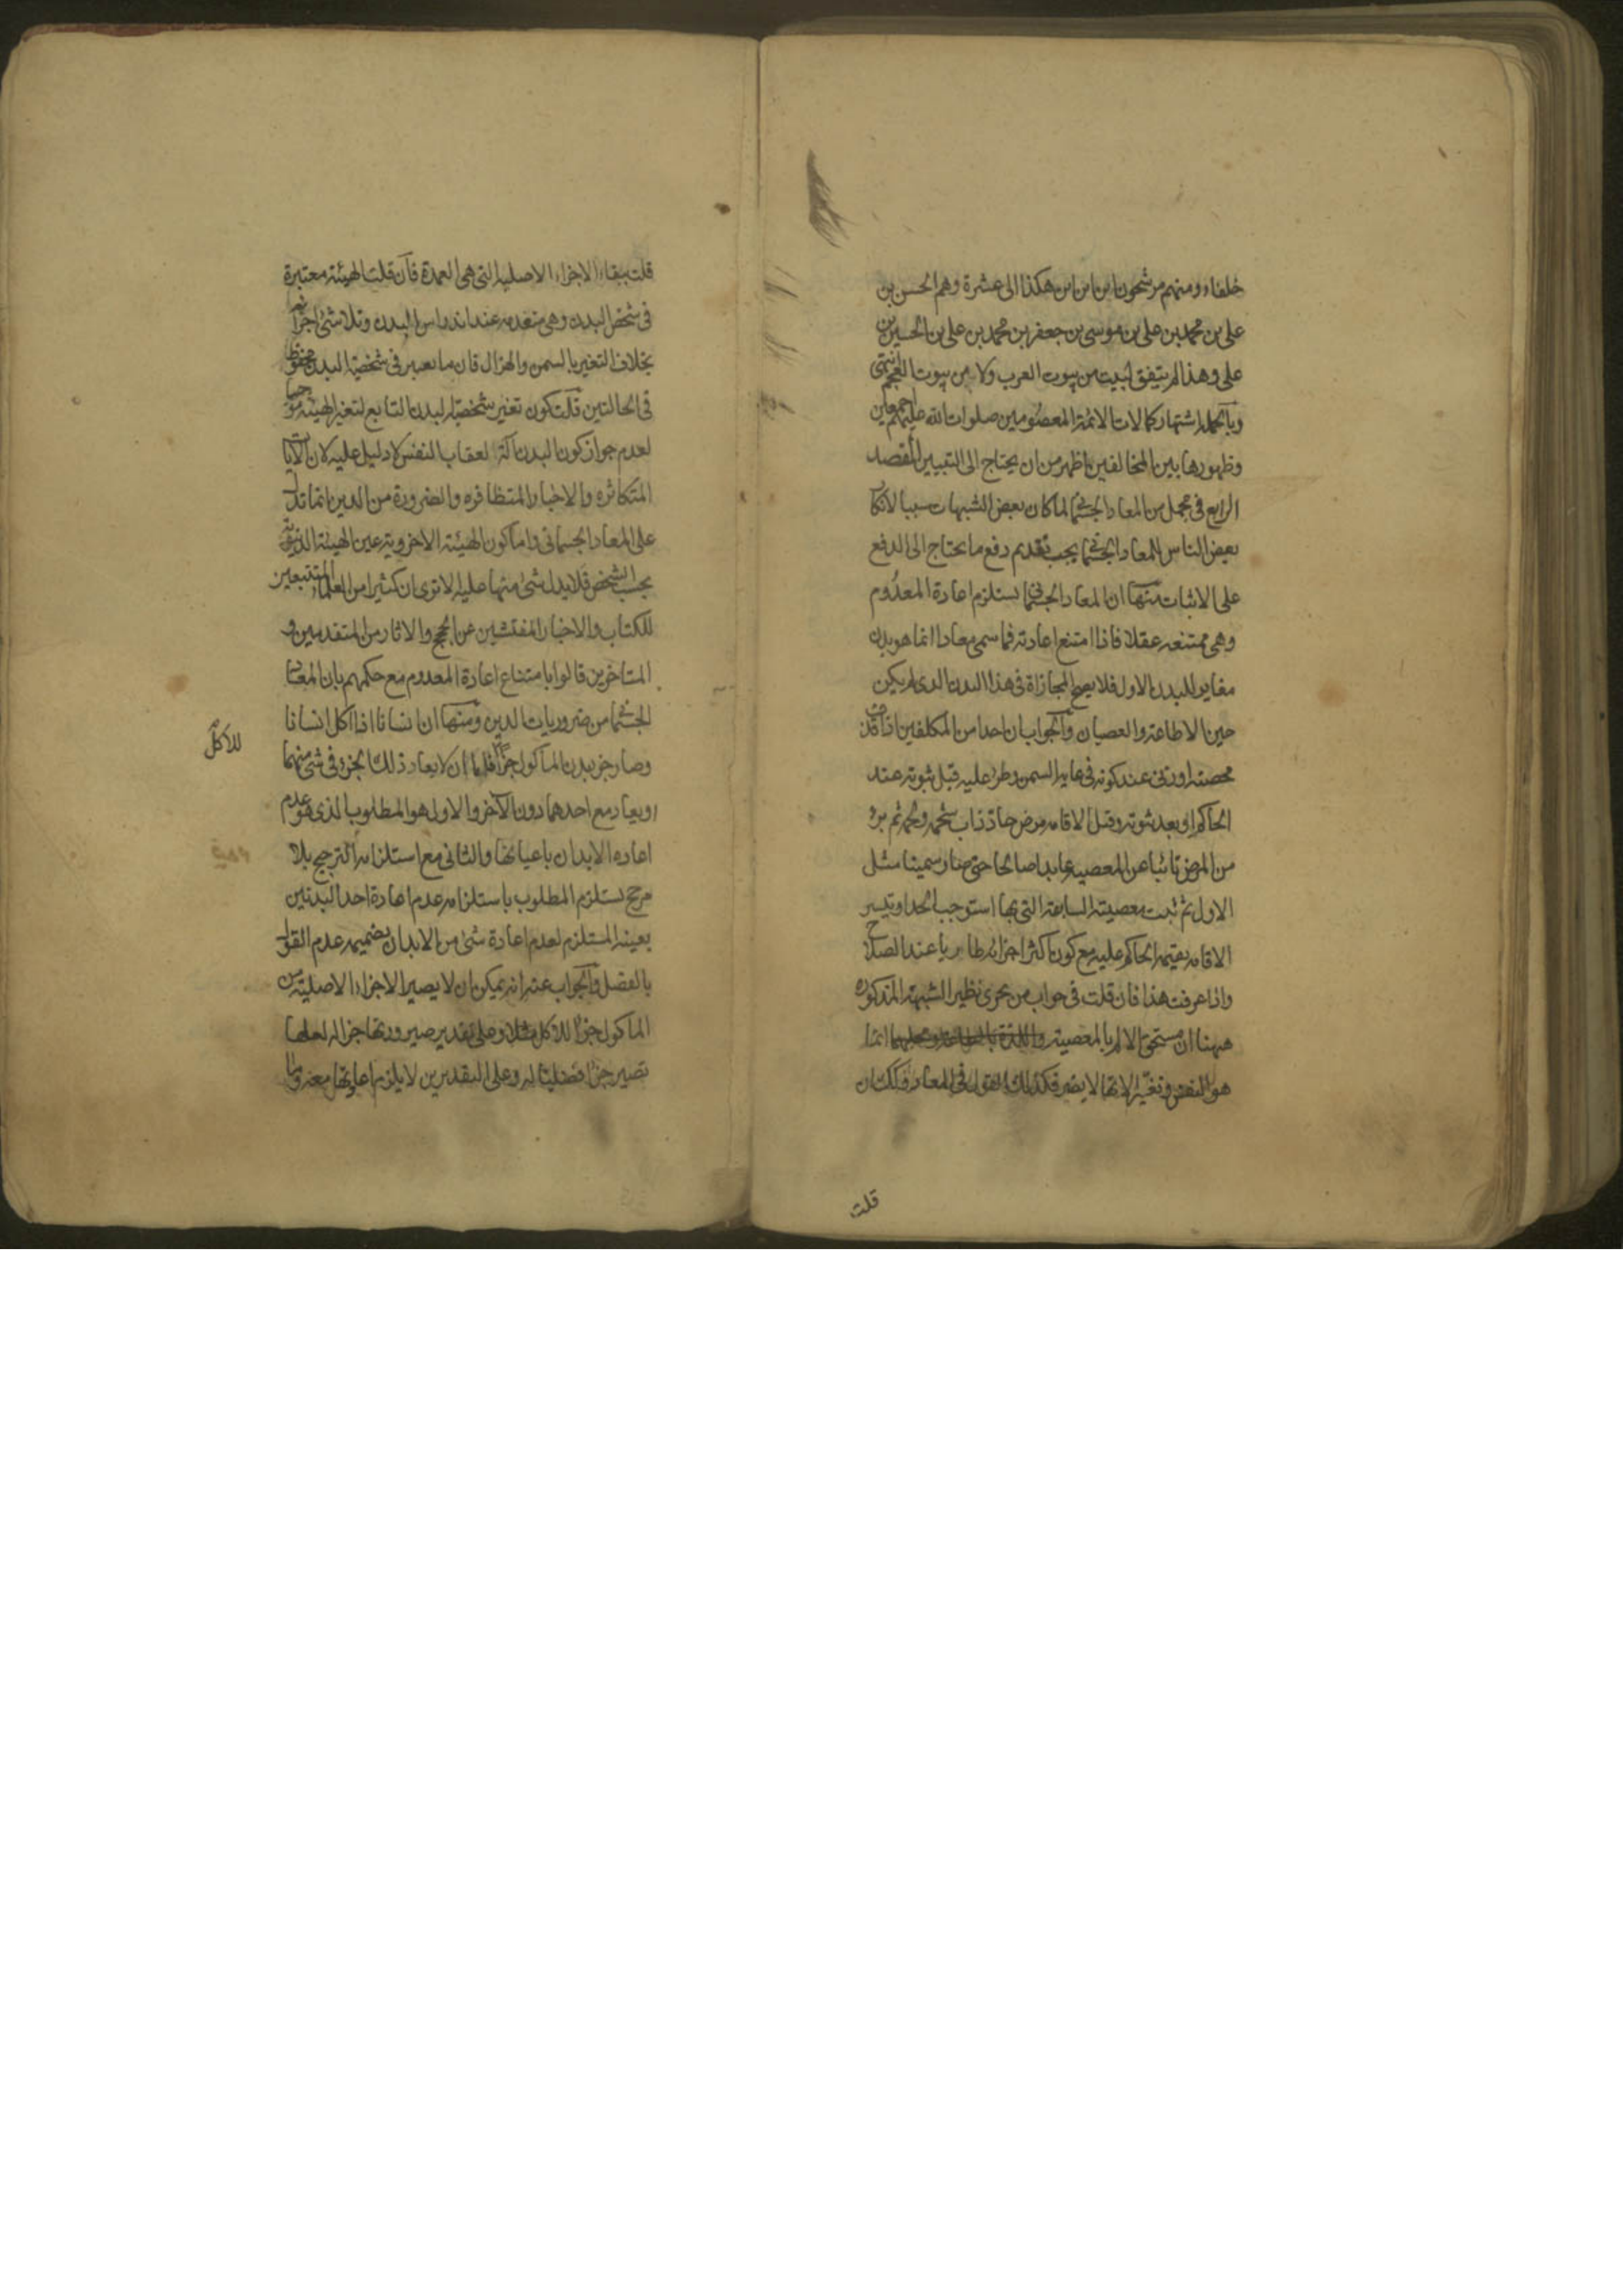 خلفاء ومنهم مرشحون ابن ابن ابن هكذا الى عشرة وهم الحسن بن
علي بن محمد بن علي بن موسى بن جعفر بن محمد بن علي بن الحسين بن
علي وهذا لم يتفق لبيت من بيوت العرب ولا من بيوت العجم انتهى
وبالجملة اشتهار كمالات الائمة المعصومين صلوات الله عليهم اجمعين
وظهورها بين المخالفين اظهر من ان يحتاج الى التبيين المقصد
الرابع في مجمل من المعاد الجسماني لما كان بعض الشبهات سببا لانكار
بعض الناس للمعاد الجسماني يجب تقديم دفع ما يحتاج الى الدفع
على الاثبات منها ان المعاد الجسماني يستلزم اعادة المعدوم
وهي ممتنعة عقلا فاذا امتنع اعادته فما سمي معادا انما هو بدن
مغاير للبدن الاول فلا يصح المجازاة في هذا البدن الذي لم يكن
حين الاطاعة والعصيان والجواب ان احدا من المكلفين اذا قذف
محصنة او زنى عند كونه في غاية السمن وطرء عليه قبل ثبوته عند
الحاكم او بعد ثبوته وقبل الاقامة مرض حاد ذاب شحمه ولحمه ثم برء
من المرض تائبا عن المعصية عابدا صالحا حتى صار سمينا مثل
الاول ثم ثبت معصيته السابقة التي بها استوجب الحد او تيسر
الاقامة يقيمه الحاكم عليه مع كون اكثر اجزائه طاريا عند الصلاح
واذا عرفت هذا فان قلت في جواب من يجري نظير الشبهة المذكورة
ههنا ان مستحق الالم بالمعصية انما
هو النفس وتغير الاتها لا يضر فكذلك القول في المعاد وان قلت ان
قلت
قلت ببقاء الاجزاء الاصلية التي هي العمدة فان قلت الهيئة معتبرة
في شخص البدن وهي منعدمة عند اندراس البدن وتلاشي اجزائه
بخلاف التغير بالسمن والهزال فان ما يعتبر في شخصية البدن محفوظ
في الحالتين قلت كون تغير شخصية البدن التابع لتغير الهيئة موجبا
لعدم جواز كون البدن آلة لعقاب النفس لا دليل عليه لان الآيات
المتكاثرة والاخبار المتظافرة والضرورة من الدين انما تدل
على المعاد الجسماني واما كون الهيئة الاخروية عين الهيئة الدنيوية
بحسب الشخص فلا يدل شيء منها عليه الا ترى ان كثيرا من العلماء المتتبعين
للكتاب والاخبار المفتشين عن الحجج والاثار من المتقدمين و
المتأخرين قالوا بامتناع اعادة المعدوم مع حكمهم بان المعاد
الجسماني من ضروريات الدين ومنها ان انسانا اذا اكل انسانا
وصار جزء بدن المأكول جزأ للآكل فاما ان لا يعاد ذلك الجزء في شيء منهما
او يعاد مع احدهما دون الآخر والاول هو المطلوب الذي هو عدم
اعادة الابدان باعيانها والثاني مع استلزامه الترجيح بلا
مرجح يستلزم المطلوب باستلزامه عدم اعادة احد البدنين
بعينه المستلزم لعدم اعادة شيء من الابدان بضميمة عدم القول
بالفصل والجواب عنه انه يمكن ان لا يصير الاجزاء الاصلية من
المأكول جزءا للآكل مثلا وعلى تقدير صيرورتها جزءا له لعلها
تصير جزءا فضليا له وعلى التقديرين لا يلزم اعادتها معه